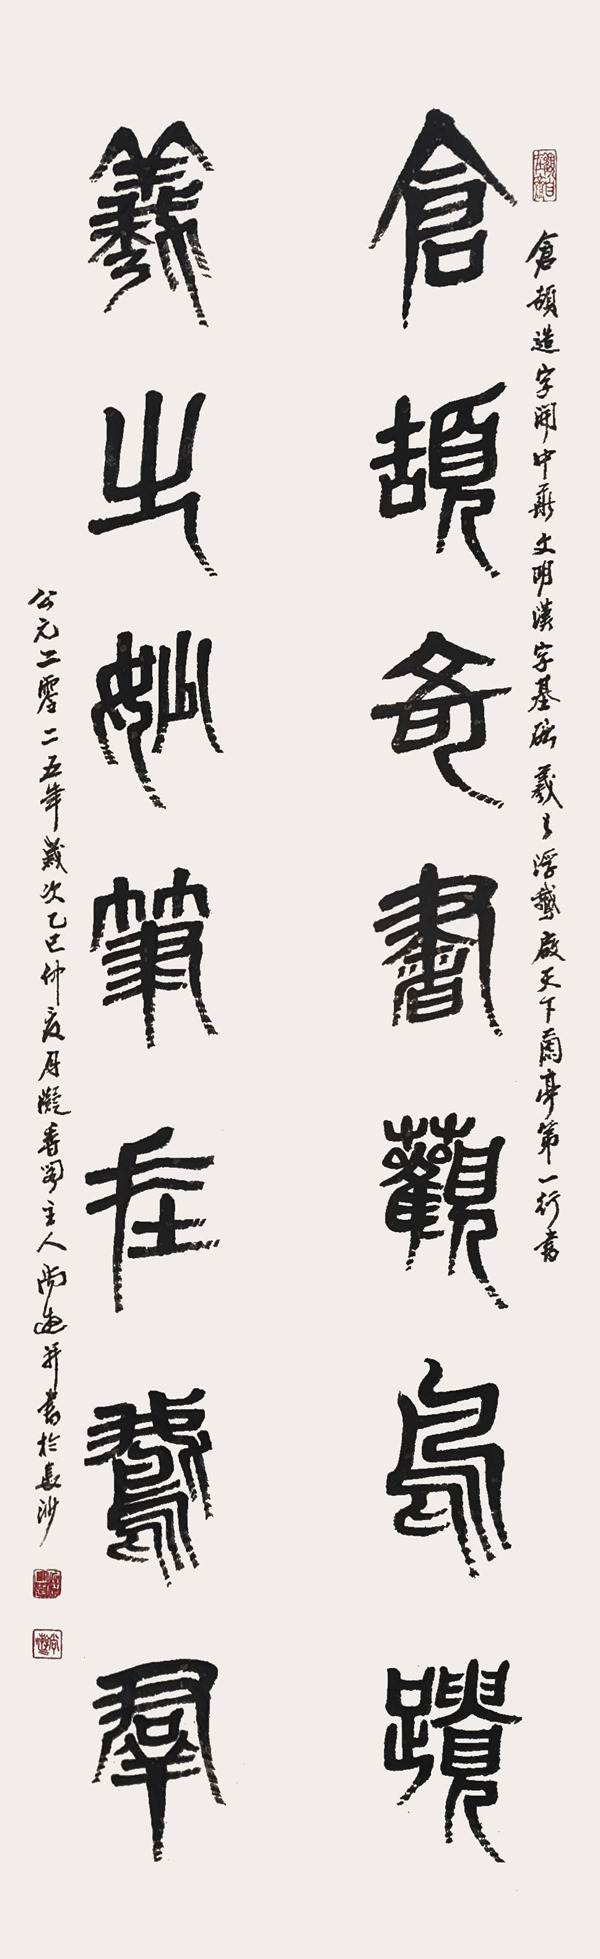 倉頡造字開中華文明漢字基礎羲之浮鵝啟天下蘭亭第一行書
倉頡奇書觀鳥蹟
羲之妙筆在鵝群
公元二零二五年歲次乙巳仲夏月凝香閣主人尚進并書於長沙